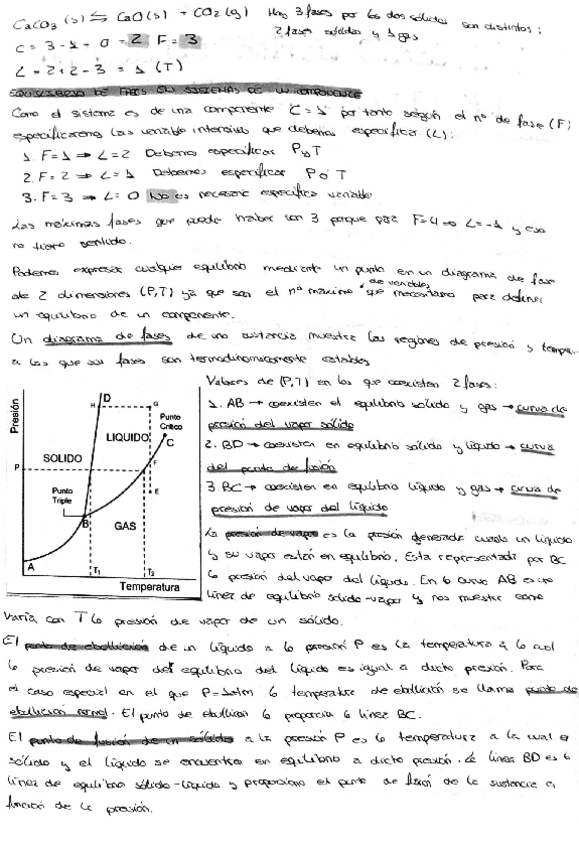 CaCO3 (s) ⇆ CaO(s) + CO2(g) Hay 3 fases por los dos sólidos son distintos:
C = 3 - 1 - 0 = 2 F = 3 2 fases sólidas y 1 gas
L = 2 + 2 - 3 = 1 (T)
EQUILIBRIO DE FASES EN SISTEMAS DE UN COMPONENTE
Como el sistema es de una componente C = 1 por tanto según el nº de fase (F)
especificaremos las variable intensivas que debemos especificar (L):
1. F = 1 ⇒ L = 2 Debemos especificar P y T
2. F = 2 ⇒ L = 1 Debemos especificar P o T
3. F = 3 ⇒ L = 0 No es necesario especificar variable
Las máximas fases que puede haber son 3 porque para F = 4 ⇒ L = -1 y eso
no tiene sentido.
Podemos expresar cualquier equilibrio mediante un punto en un diagrama de fase
de 2 dimensiones (P,T) ya que son el nº máximo de variables que necesitamos para definir
un equilibrio de un componente.
Un diagrama de fases de una sustancia muestra las regiones de presión y tempera-
a las que sus fases son termodinámicamente estables
Valores de (P,T) en los que coexisten 2 fases:
1. AB → coexisten el equilibrio sólido y gas → curva de
presión del vapor sólido
2. BD → coexisten en equilibrio sólido y líquido → curva
del punto de fusión
3. BC → coexisten en equilibrio líquido y gas → curva de
presión de vapor del líquido
La presión de vapor es la presión generada cuando un líquido
y su vapor están en equilibrio. Esta representada por BC
la presión del vapor del líquido. En la curva AB es una
línea de equilibrio sólido-vapor y nos muestra como
Presión
Temperatura
SOLIDO
LIQUIDO
GAS
Punto Crítico
Punto Triple
A
B
C
D
E
F
G
H
P
T1
T2
varía con T la presión de vapor de un sólido.
El punto de ebullición de un líquido a la presión P es la temperatura a la cual
la presión de vapor del equilibrio del líquido es igual a dicha presión. Para
el caso especial en el que P = 1 atm la temperatura de ebullición se llama punto de
ebullición normal. El punto de ebullición lo proporcia la línea BC.
El punto de fusión de un sólido a la presión P es la temperatura a la cual el
sólido y el líquido se encuentra en equilibrio a dicha presión. La línea BD es la
línea de equilibrio sólido-líquido y proporciona el punto de fusión de la sustancia en
función de la presión.